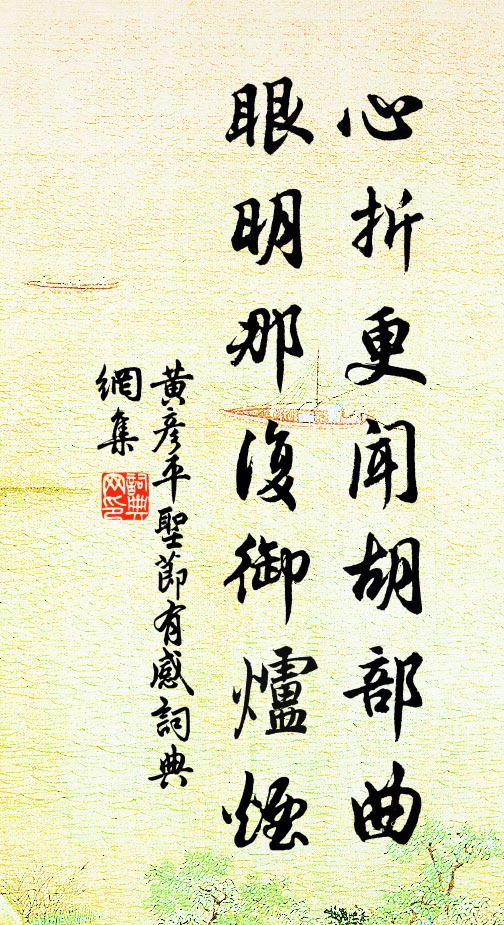 心折更聞胡部曲
眼明那復御爐煙
黃彥平聖節有感詞典
網集
詞典
网印